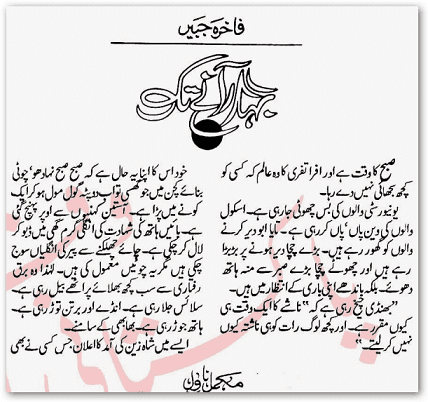 فاخرہ جبیں
بہار آنے تک
صبح کا وقت ہے اور افراتفری کا وہ عالم کہ کسی کو
کچھ بھائی نہیں دے رہا۔
یونیورسٹی والوں کی بس چھوٹی جا رہی ہے۔ اسکول
والوں کی وین پاں پاں کر رہی ہے۔ تایا ابو دیر کرنے
والوں کو گھور رہے ہیں۔ بڑے چچا دیر ہونے پر بڑبڑا
رہے ہیں اور چھوٹے چچا بڑے صبر سے منہ ہاتھ
دھوئے۔ بلکہ باندھے اپنی باری کے انتظار میں ہیں۔
"بھنڈی چیخ رہی ہے کہ "ناشتے کا ایک وقت ہی
کیوں مقرر ہے۔ اور کچھ لوگ رات کو ہی ناشتہ کیوں
نہیں کر لیتے"
خود اس کا اپنا یہ حال ہے کہ صبح صبح نہا دھو، چوٹی
بنائے کچن میں جو گھسی تو اب دوپٹہ گول مول ہو کر ایک
کونے میں پڑا ہے۔ آستینیں کہنیوں سے اوپر پہنچ گئی
ہیں۔ بائیں ہاتھ کی شہادت کی انگلی گرم گھی میں ڈبو کر
لال کر چکی ہے۔ چائے چھلکنے سے پیر کی انگلیاں سوج
چکی ہیں مگر یہ چوٹیں معمول کی ہیں۔ لہذا وہ برق
رفتاری سے سب کچھ بھلائے پراٹھے بیل رہی ہے۔
سلائس جلا رہی ہے۔ انڈے اور برتن توڑ رہی ہے۔
ہاتھ جوڑ رہی ہے۔ بھابھی کے سامنے۔
ایسے میں شاہ زین کی آمد کا اعلان جس کسی نے بھی
مکمل ناول